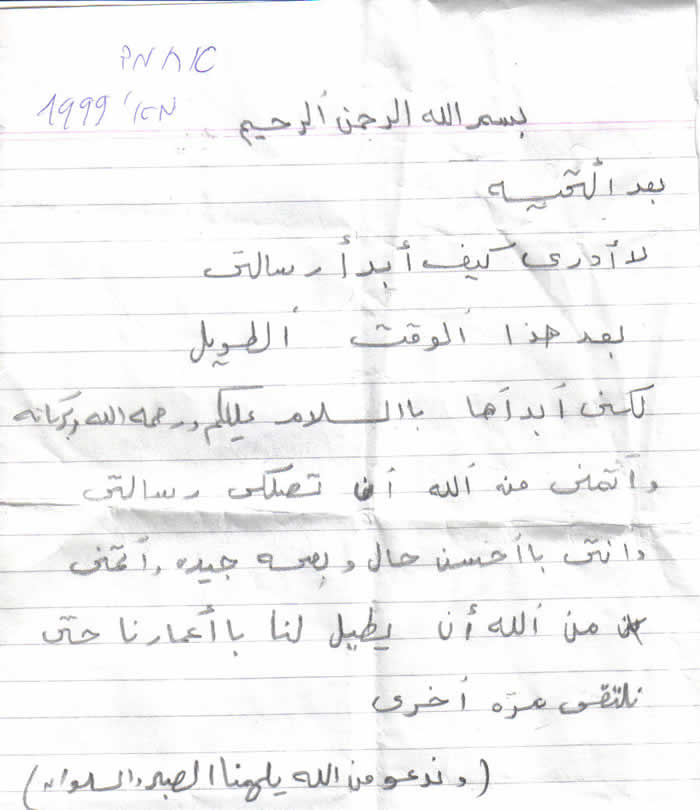 מאי 1999
بسم الله الرحمن ألرحيم
بعد ألتحيه
لا أدرى كيف أبدأ رسالتى
بعد هذا ألوقت ألطويل
لكنى أبدأها باالسلام عليكم ورحمه الله وبركاته
وأتمنى من ألله أن تصلكى رسالتى
وانتى باأحسن حال وبصحه جيده وأتمنى
من ألله أن يطيل لنا باأعمارنا حتى
نلتقى مره أخرى
(وندعو من الله يلهمنا الصبر والسلوان)